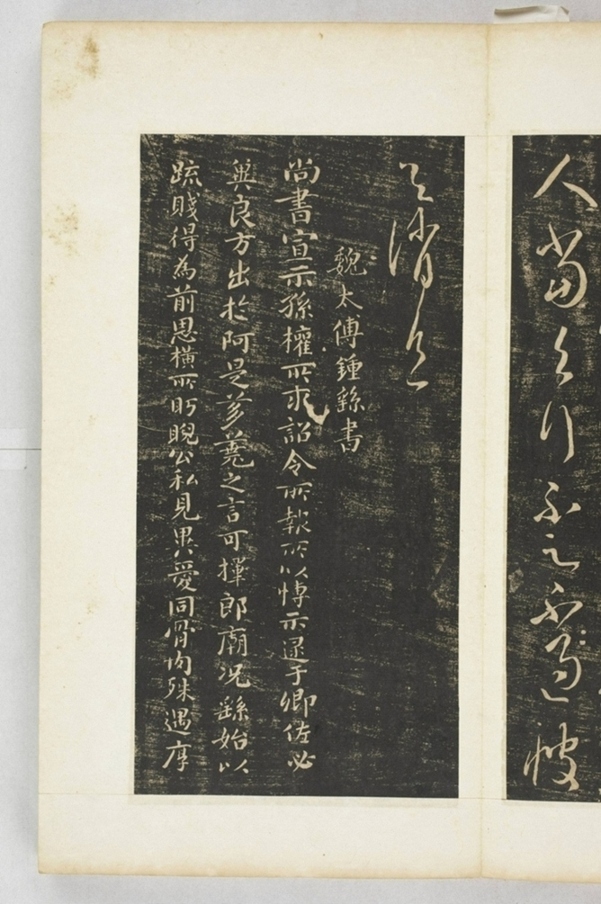 人當行不不過彼
消息
魏太傅鍾繇書
尚書宣示孫權所求詔令所報所以博示逮于卿佐必
冀良方出於阿是芻蕘之言可擇郎廟況繇始以
疏賤得為前恩橫所盼睨公私見異愛同骨肉殊遇厚